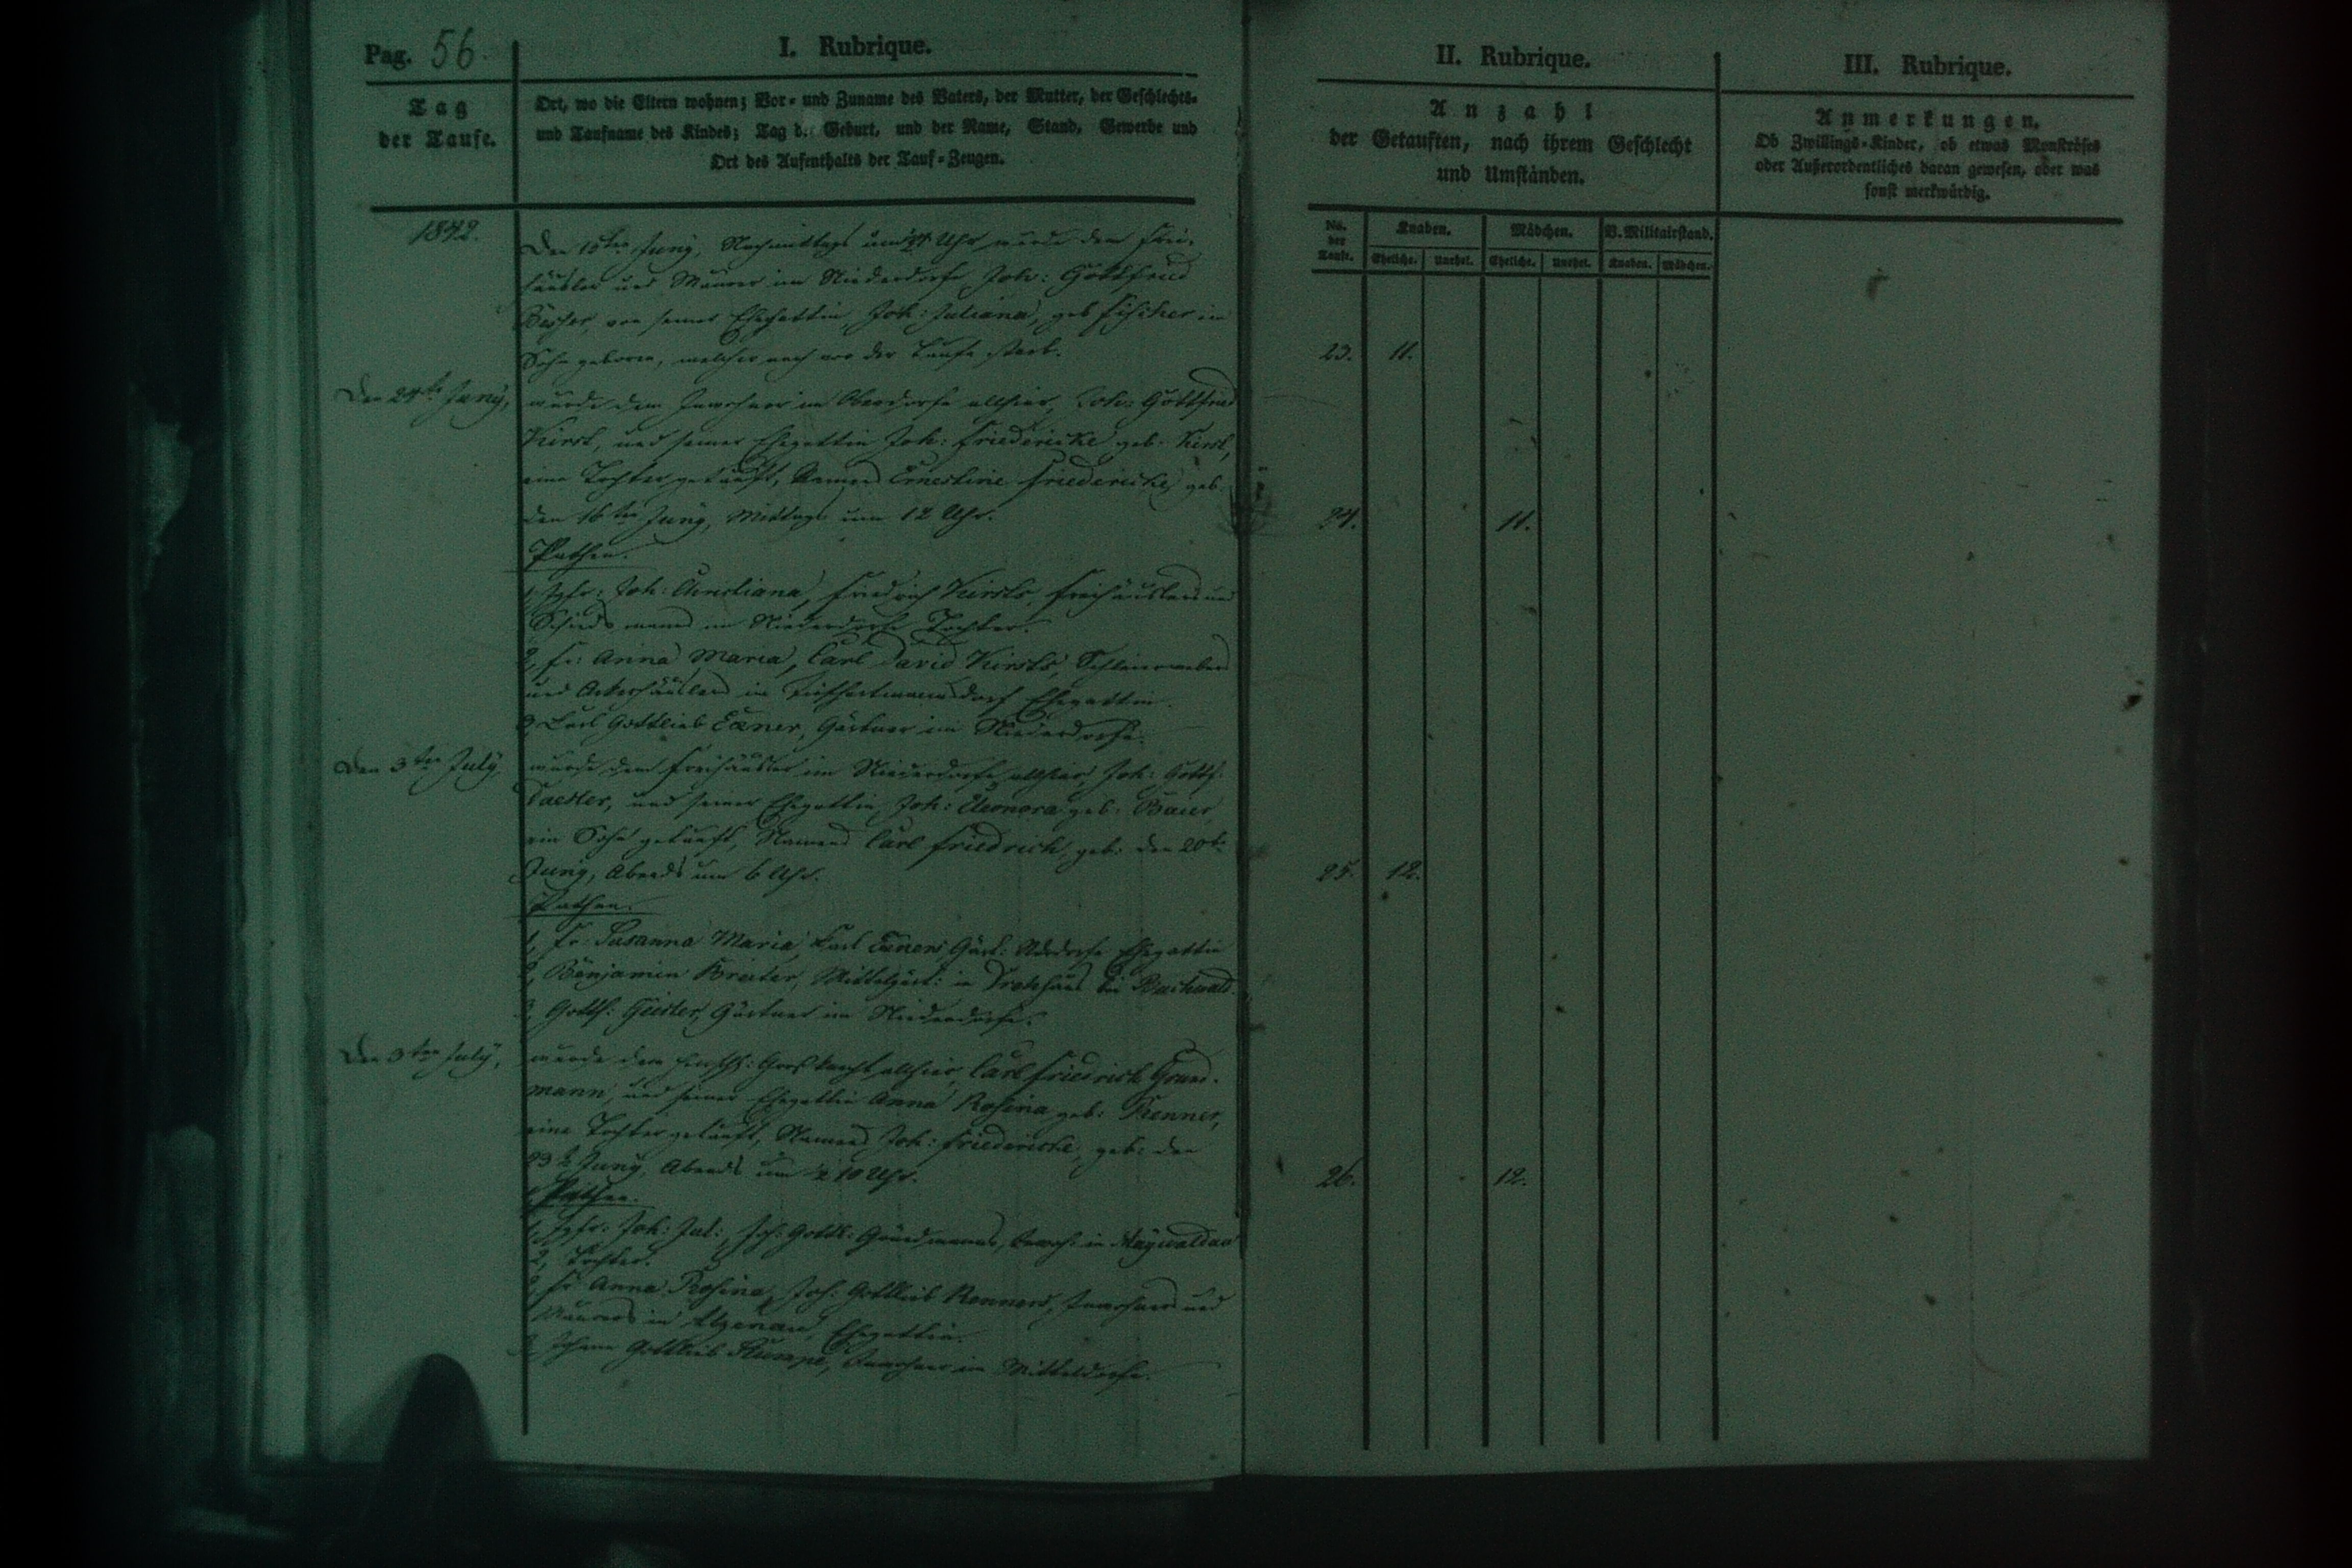 Pag. 56
I. Rubrique.
Tag
der Taufe.
Ort, wo die Eltern wohnen; Vor- und Zuname des Vaters, der Mutter, der Geschlechts-
und Taufname des Kindes; Tag der Geburt, und der Name, Stand, Gewerbe und
Ort des Aufenthalts der Tauf-Zeugen.
1842.
Den 15ten Juny, Nachmittags um Uhr wurde dem Frei-
häusler und Maurer im Niederdorfe Joh: Gottfried
von seiner Ehegattin, Joh: Juliana, geb Fischer ein
Sohn geboren, welcher noch vor der Taufe starb.
Den 24te Juny,
wurde dem Inwohner im Oberdorfe allhier, Joh: Gottfried
Kirst, und seiner Ehegattin Joh: Friedericke geb. Kirst,
eine Tochter getauft, Namens Ernestine Friedericke, geb.
den 16ten Juny, Mittags um 12 Uhr.
Pathen.
1, Jgfr: Joh: Christiana, Friedrich Kirsts, Freihäuslers und
Schiedsmanns im Niederdorfe Tochter.
2, Fr: Anna Maria, Carl David Kirsts,
und Ackerhäuslers in Ehegattin.
3, Carl Gottlieb Exner, Gärtner im Niederdorfe.
Den 3ten July
wurde dem Freihäusler im Niederdorfe allhier, Joh: Gottf:
und seiner Ehegattin Joh: Eleonora geb. Baier,
ein Sohn getauft, Namens Carl Friedrich, geb: den 20te
Juny, Abends um 6 Uhr.
Pathen.
1, Fr: Susanna Maria, Karl Exners Gärt: Ndrdorfe Ehegattin
2, Benjamin Breiter, in bei Buchwald.
3, Gottf: Geisler, Gärtner im Niederdorfe.
Den 3ten July,
wurde dem allhier, Carl Friedrich Grund-
mann, und seiner Ehegattin Anna Rosina geb: Renner,
eine Tochter getauft, Namens Joh: Friedericke, geb: den
23te Juny, Abends um ½ 10 Uhr.
Pathen.
1, Jgfr: Joh: Jul:, Joh: Gottl: Grundmanns, in Maywaldau
2, Tochter.
2, Fr. Anna Rosina, Joh: Gottlieb Renners, Inwohners und
Maurers in Ehegattin.
3, Johann Gottlieb Inwohner im Mitteldorfe.
II. Rubrique.
Anzahl
der Getauften, nach ihrem Geschlecht
und Umständen.
No.
der
Taufe.
Knaben. Mädchen. V. Militairstand.
Eheliche. Unehel. Eheliche. Unehel. Knaben. Mädchen.
23. 11.
24. 11.
25. 12.
26. 12.
III. Rubrique.
Anmerkungen.
Ob Zwillings-Kinder, ob etwas Monströses
oder Außerordentliches daran gewesen, oder was
sonst merkwürdig.